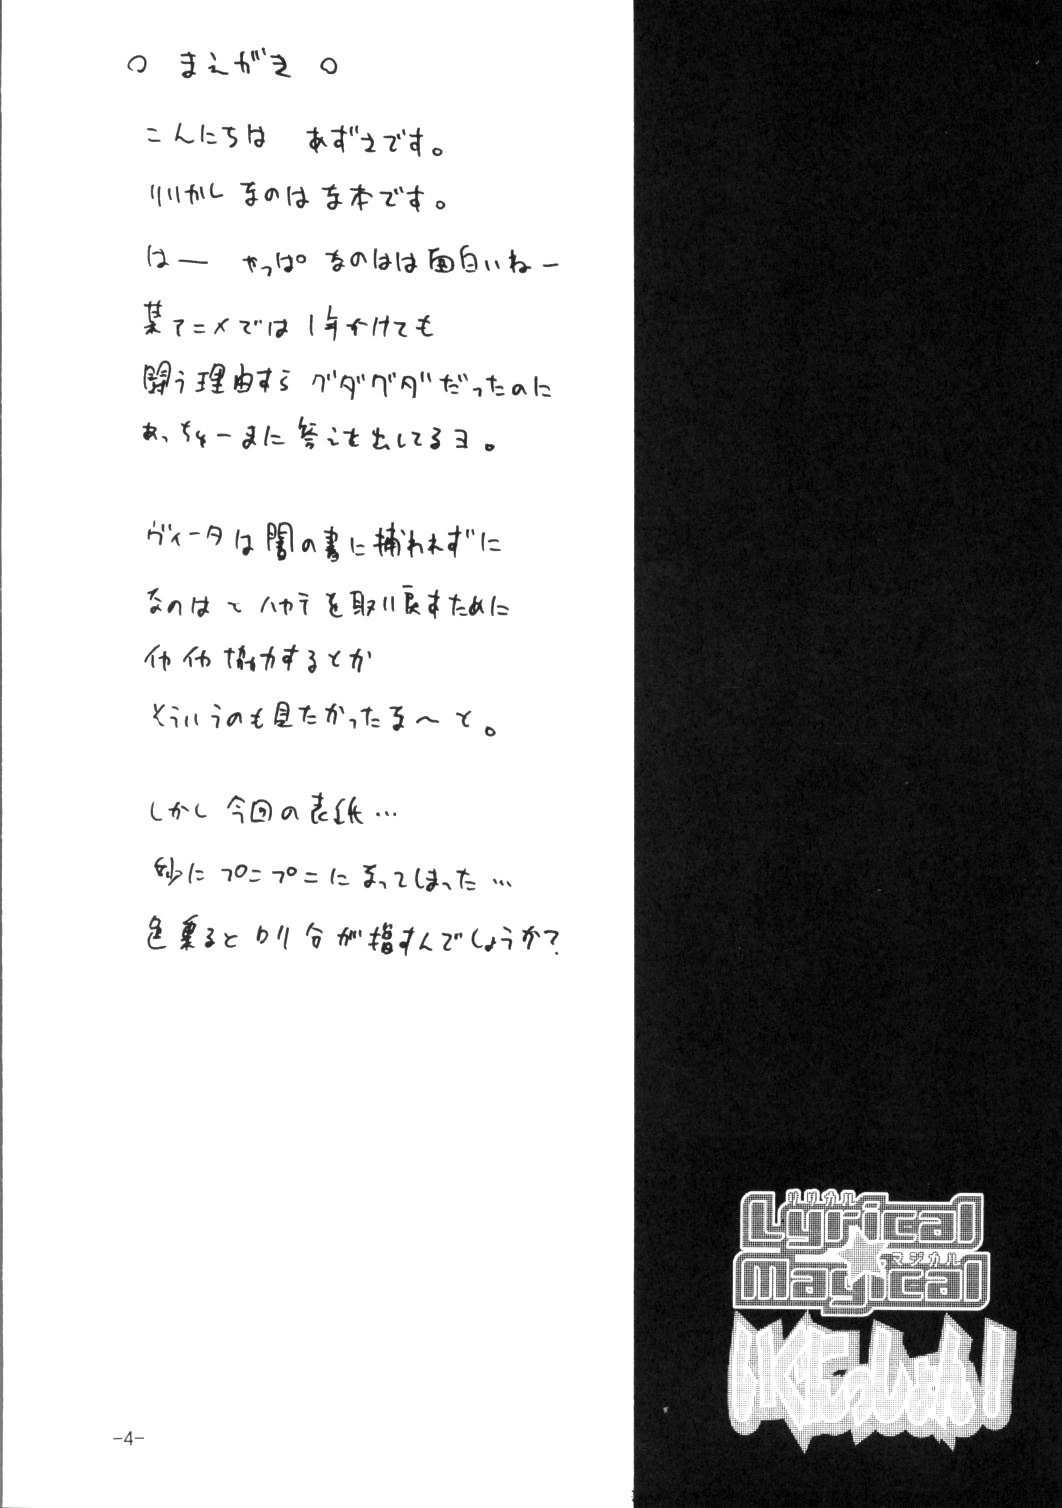 ○ まえがき ○
こんにちは あずさです。
リリカル なのは な本です。
はー やっぱ なのはは面白いねー
某アニメでは 1年かけても
闘う理由すら グダグダだったのに
あっちゅーまに 答えを出してるヨ。
ヴィータは闇の書に捕われずに
なのはと ハヤテを取り戻すために
イヤイヤ 協力するとか
そういうのも見たかったな〜と。
しかし 今回の表紙…
妙に プニプニに なってしまった…
色塗ると ロリ分が指すんでしょうか?
リリカル
Lyrical
マジカル
Magical
-4-